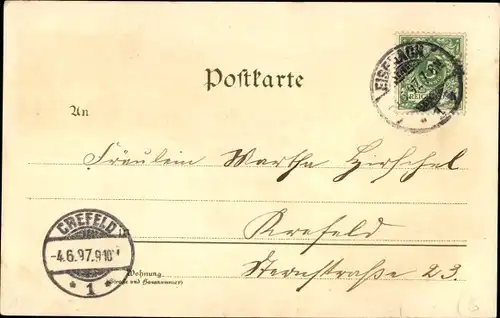 EISENACH
97
Postkarte
An
Fräulein Martha Hirschel
Krefeld
Sternstraße 23.
CREFELD
-4.6.97.9
* 1 *
Wohnung
(Straße und Hausnummer)